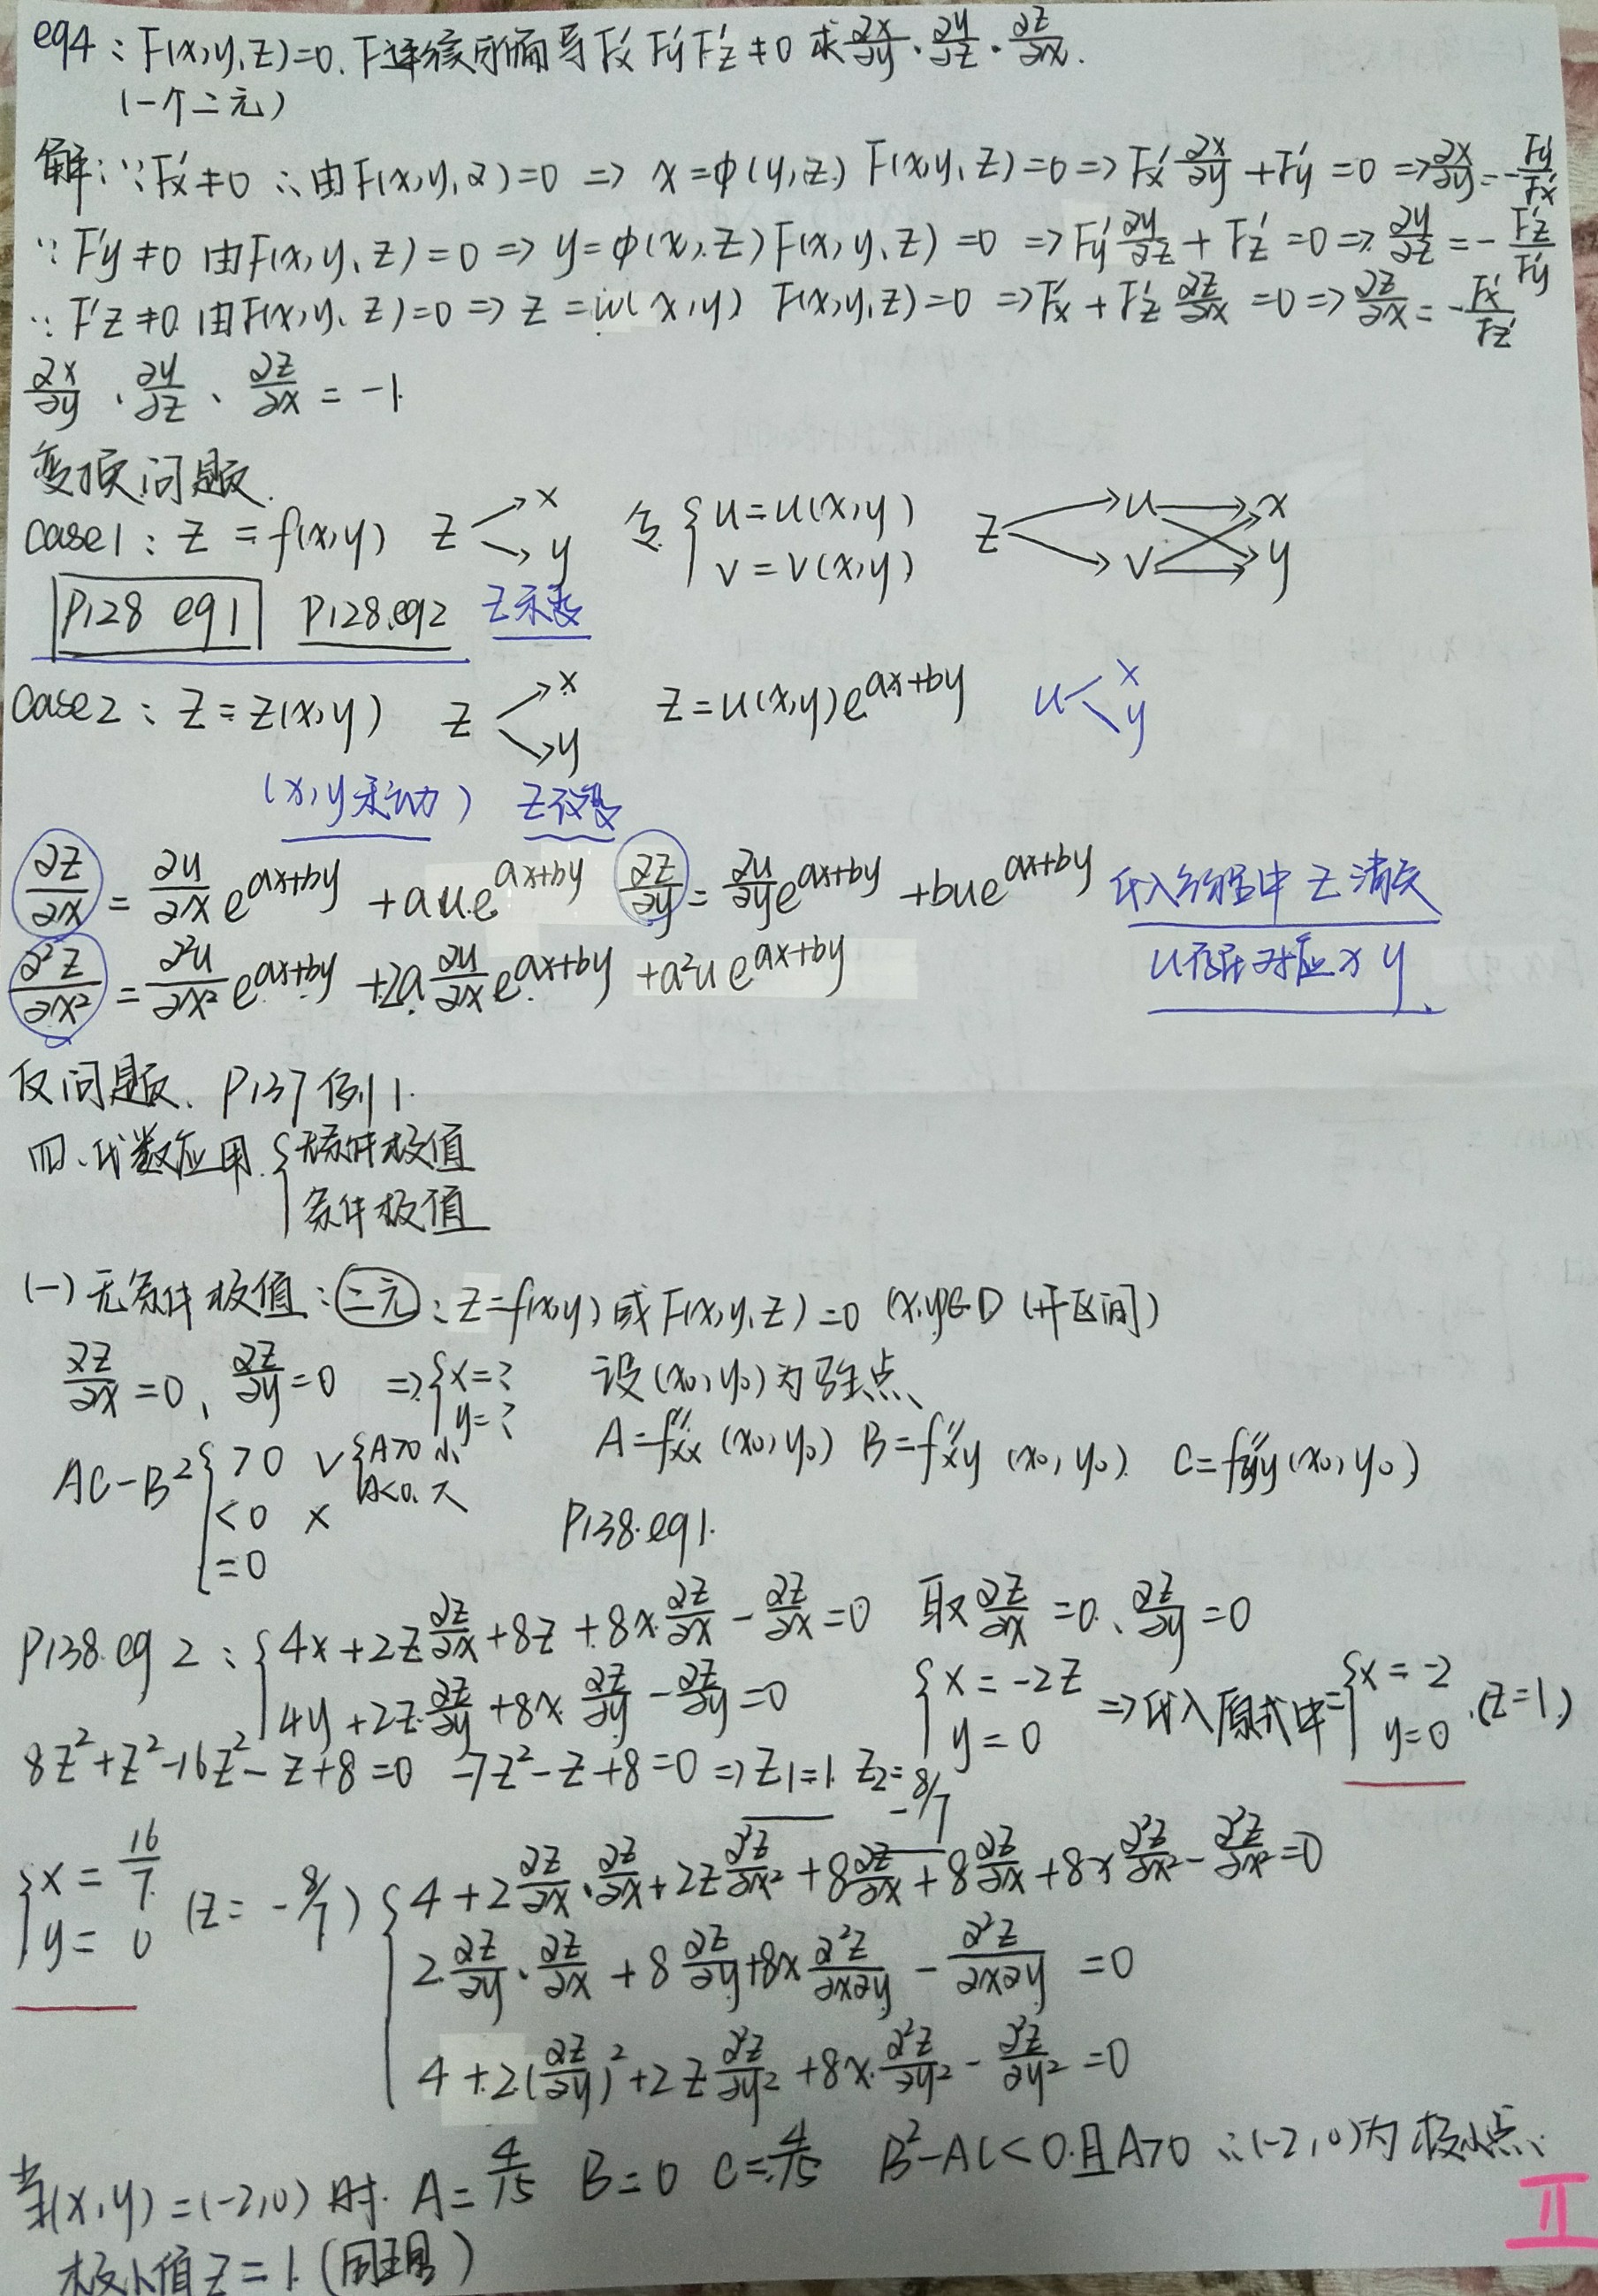 eg4：F(x,y,z)=0. F连续可偏导 F'x F'y F'z ≠0 求 ∂x/∂y · ∂y/∂z · ∂z/∂x.
(一个二元)
解：∵F'x≠0 ∴由F(x,y,z)=0 => x=φ(y,z) F(x,y,z)=0 => F'x ∂x/∂y + F'y =0 => ∂x/∂y = -F'y/F'x
∵F'y≠0 由F(x,y,z)=0 => y=φ(x,z) F(x,y,z)=0 => F'y ∂y/∂z + F'z =0 => ∂y/∂z = -F'z/F'y
∵F'z≠0 由F(x,y,z)=0 => z=w(x,y) F(x,y,z)=0 => F'x + F'z ∂z/∂x =0 => ∂z/∂x = -F'x/F'z
∂x/∂y · ∂y/∂z · ∂z/∂x = -1.
变换问题.
case1：z=f(x,y) z → x y 令 { u=u(x,y) v=v(x,y) z → u v → x y
P128 eg1 P128.eg2 z未变
case2：z=z(x,y) z → x y z=u(x,y)e^(ax+by) u < x y
(x,y未动) z改变
∂z/∂x = ∂u/∂x e^(ax+by) + aue^(ax+by) ∂z/∂y = ∂u/∂y e^(ax+by) + bue^(ax+by) 代入方程中 z消失
∂²z/∂x² = ∂²u/∂x² e^(ax+by) + 2a ∂u/∂x e^(ax+by) + a²ue^(ax+by) u 对应x y.
反问题. P137例1.
四、代数应用. { 无条件极值
条件极值
(一)无条件极值：二元：z=f(x,y)或F(x,y,z)=0 (x,y)∈D (开区间)
∂z/∂x=0、∂z/∂y=0 => { x=? y=? 设(x0,y0)为驻点、
AC-B² { >0 √ { A>0 小 A<0. 大 A=f''xx(x0,y0) B=f''xy(x0,y0) C=f''yy(x0,y0)
<0 ×
=0
P138.eg1.
P138.eg2：{ 4x+2z ∂z/∂x+8z+8x ∂z/∂x - ∂z/∂x=0 取 ∂z/∂x=0、∂z/∂y=0
4y+2z ∂z/∂y+8x ∂z/∂y - ∂z/∂y=0 { x=-2z y=0 => 代入原式中= { x=-2 y=0 .(z=1.)
8z²+z²-16z²-z+8=0 -7z²-z+8=0 => z1=1. z2=-8/7
{ x=16/7 y=0 (z=-8/7) { 4+2 ∂z/∂x·∂z/∂x+2z ∂²z/∂x²+8 ∂z/∂x+8 ∂z/∂x+8x ∂²z/∂x² - ∂²z/∂x²=0
2 ∂z/∂y·∂z/∂x+8 ∂z/∂y+8x ∂²z/∂x∂y - ∂²z/∂x∂y=0
4+2(∂z/∂y)²+2z ∂²z/∂y²+8x ∂²z/∂y² - ∂²z/∂y²=0
当(x,y)=(-2,0)时. A=4/15 B=0 C=4/15 B²-AC<0.且A>0 ∴(-2,0)为极小点、
极小值z=1.(同理)
II